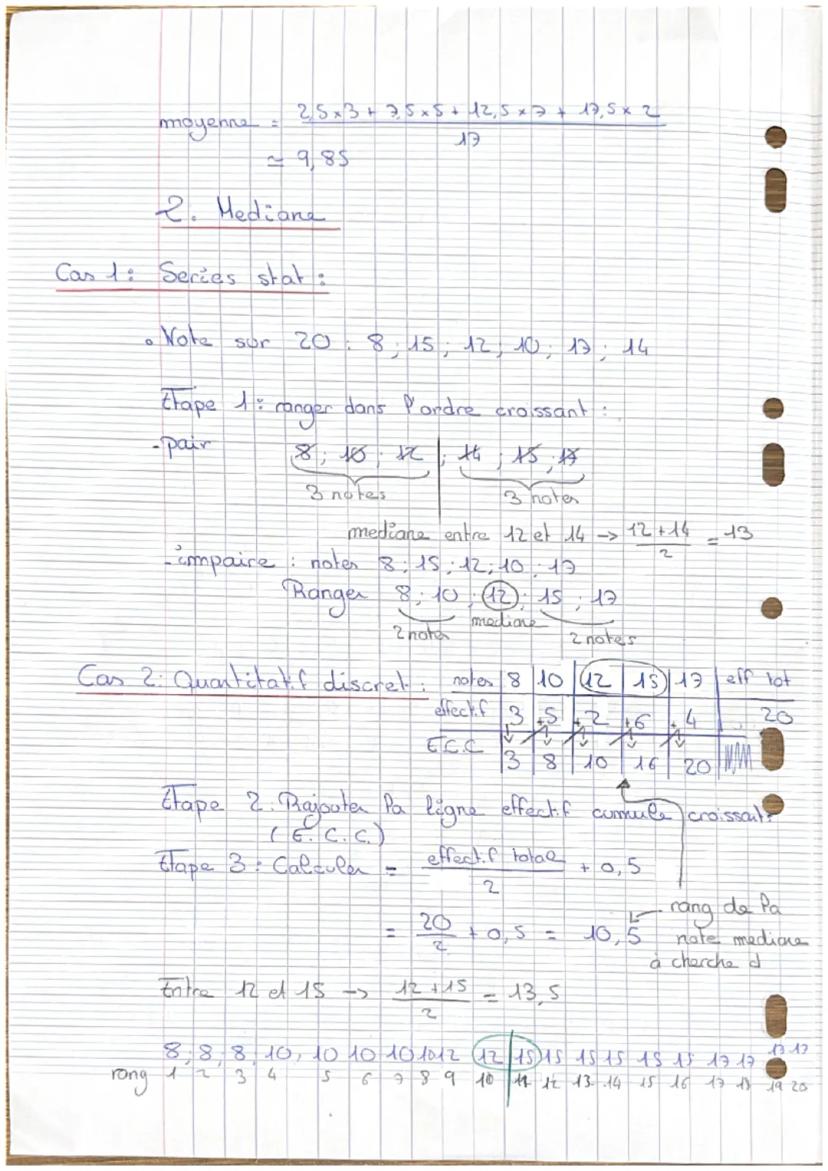 moyenne = 2,5×3 + 7,5×5 + 12,5×7 + 17,5×2 / 17
≃ 9,85
2. Mediane
Cas 1: Series stat :
• Note sur 20 : 8 ; 15 ; 12 ; 10 ; 17 ; 14
Etape 1 : ranger dans l'ordre croissant :
- pair 8 ; 10 ; 12 | ; 14 ; 15 ; 17
3 notes 3 notes
mediane entre 12 et 14 → 12+14 / 2 = 13
- impaire : notes 8 ; 15 ; 12 ; 10 ; 17
Ranger 8 ; 10 ; 12 ; 15 ; 17
2 notes mediane 2 notes
Cas 2 : Quantitatif discret : notes 8 10 12 15 17 eff tot
effectif 3 +5 +2 +6 +4 20
E.C.C 3 8 10 16 20
Etape 2 : Rajouter la ligne effectif cumule croissants
(E.C.C.)
Etape 3 : Calculer = effectif total / 2 + 0,5
= 20 / 2 + 0,5 = 10,5 rang de la
note mediane
à cherche d
Entre 12 et 15 → 12+15 / 2 = 13,5
8, 8, 8, 10, 10 10 10 10 12 12 | 15 15 15 15 15 15 17 17 17 17
rang 1 2 3 4 5 6 7 8 9 10 11 12 13 14 15 16 17 18 19 20